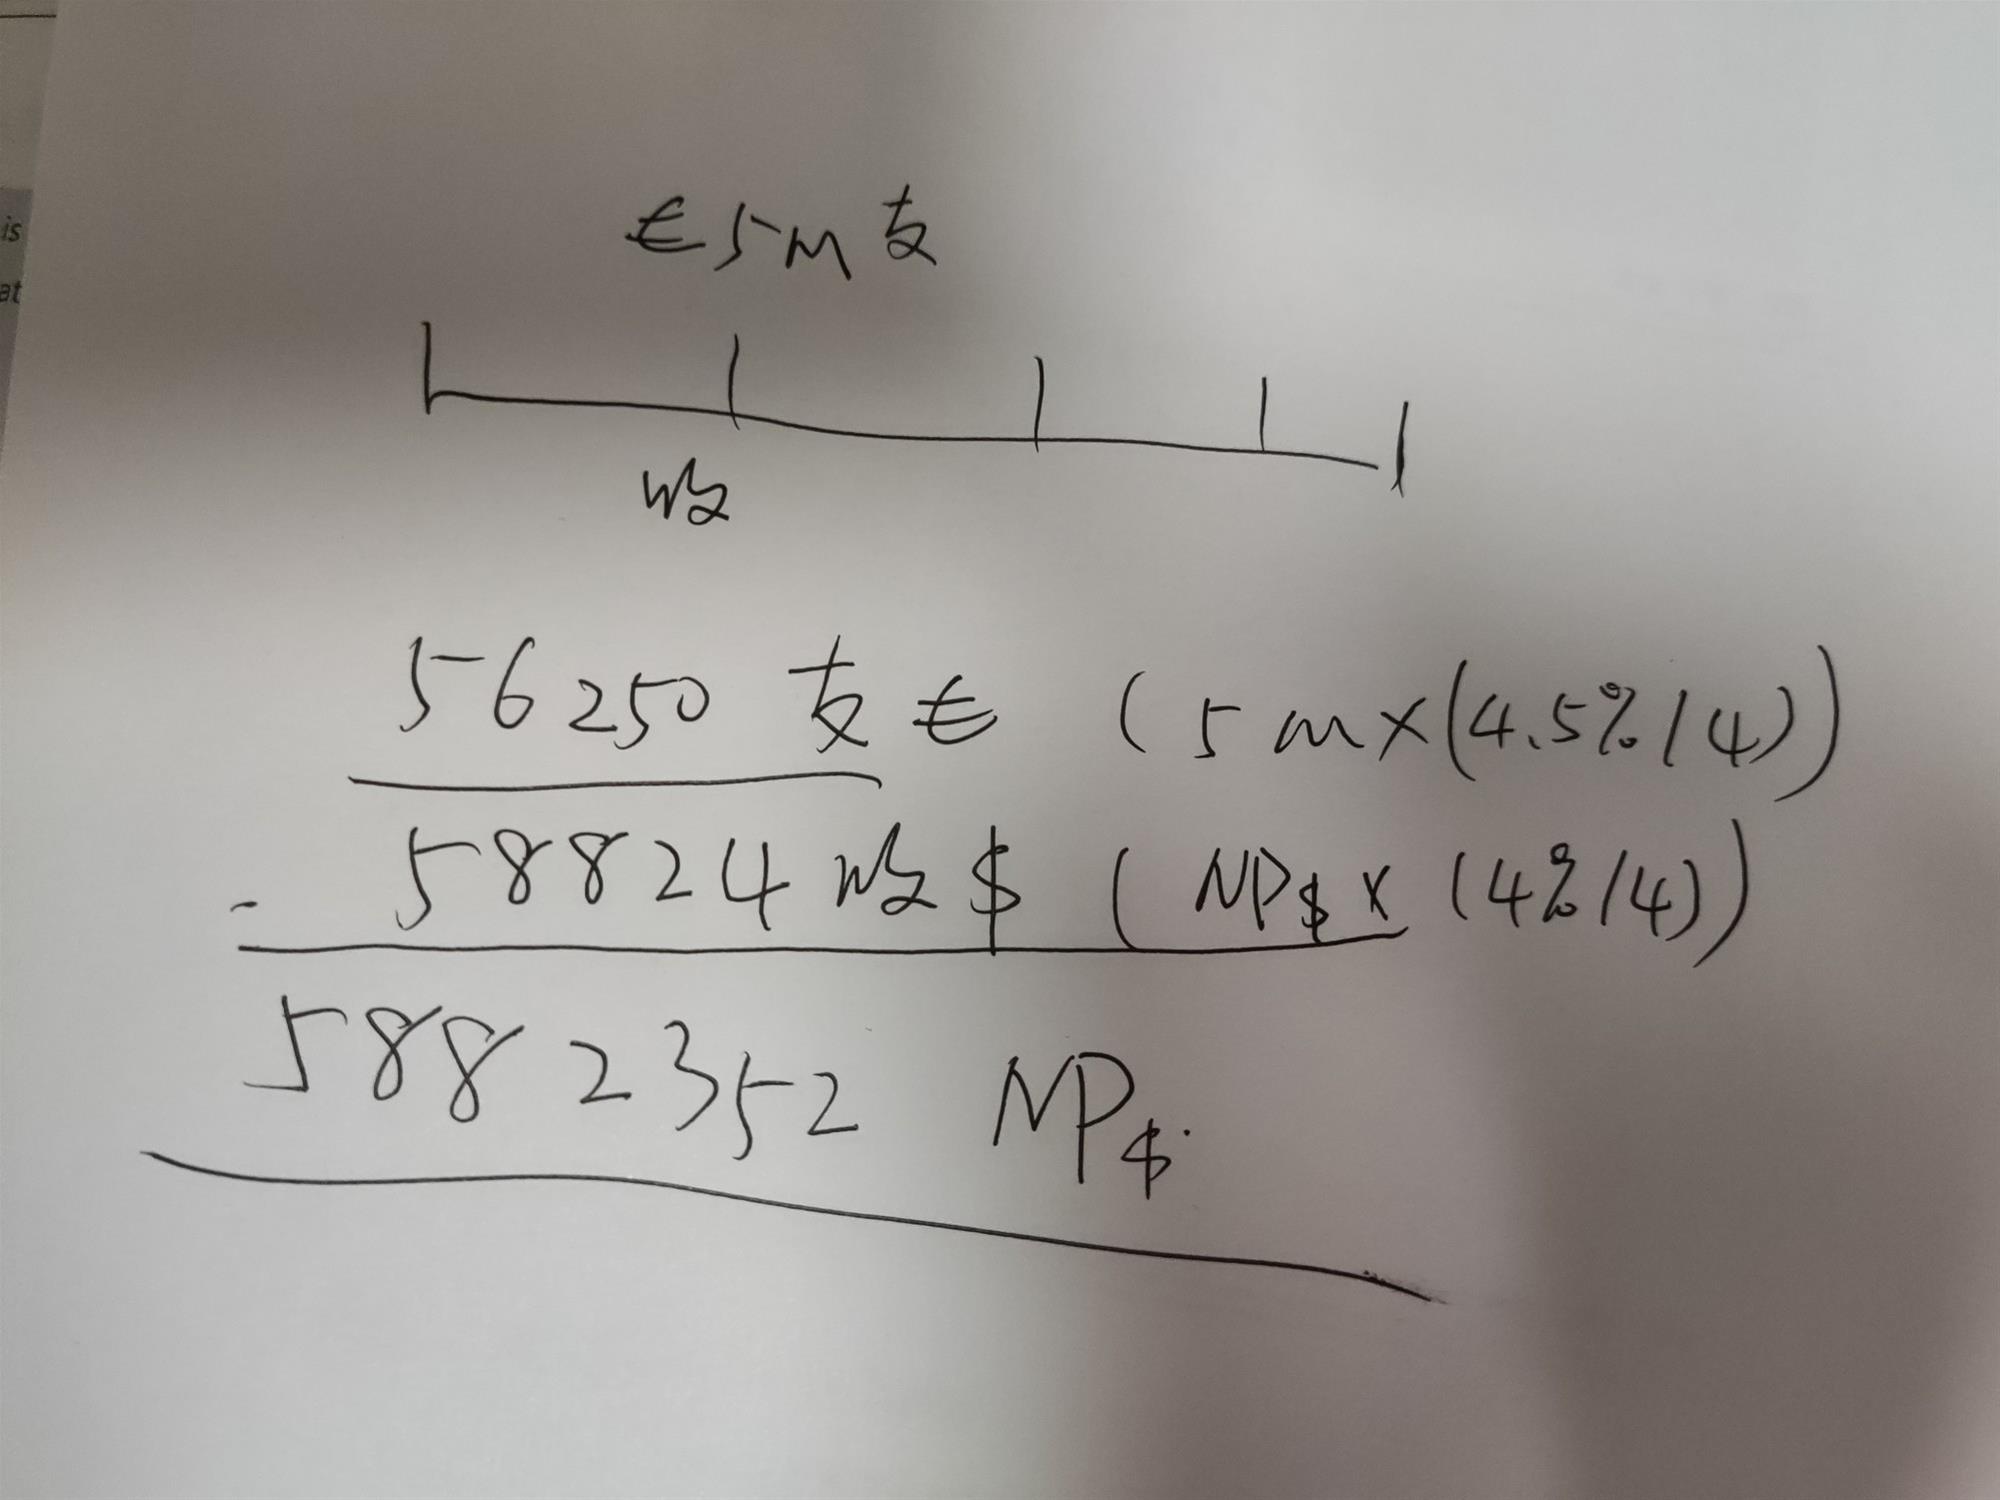 is
at
€5M支
收
56250 支€ (5m×(4.5%/4))
- 58824 收$ (NP$×(4%/4))
5882352 NP$.